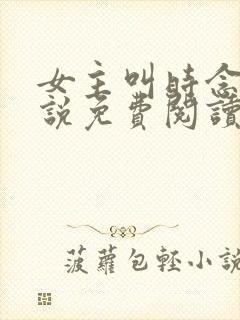 女主叫時念
說免費閱讀
菠蘿包輕小說